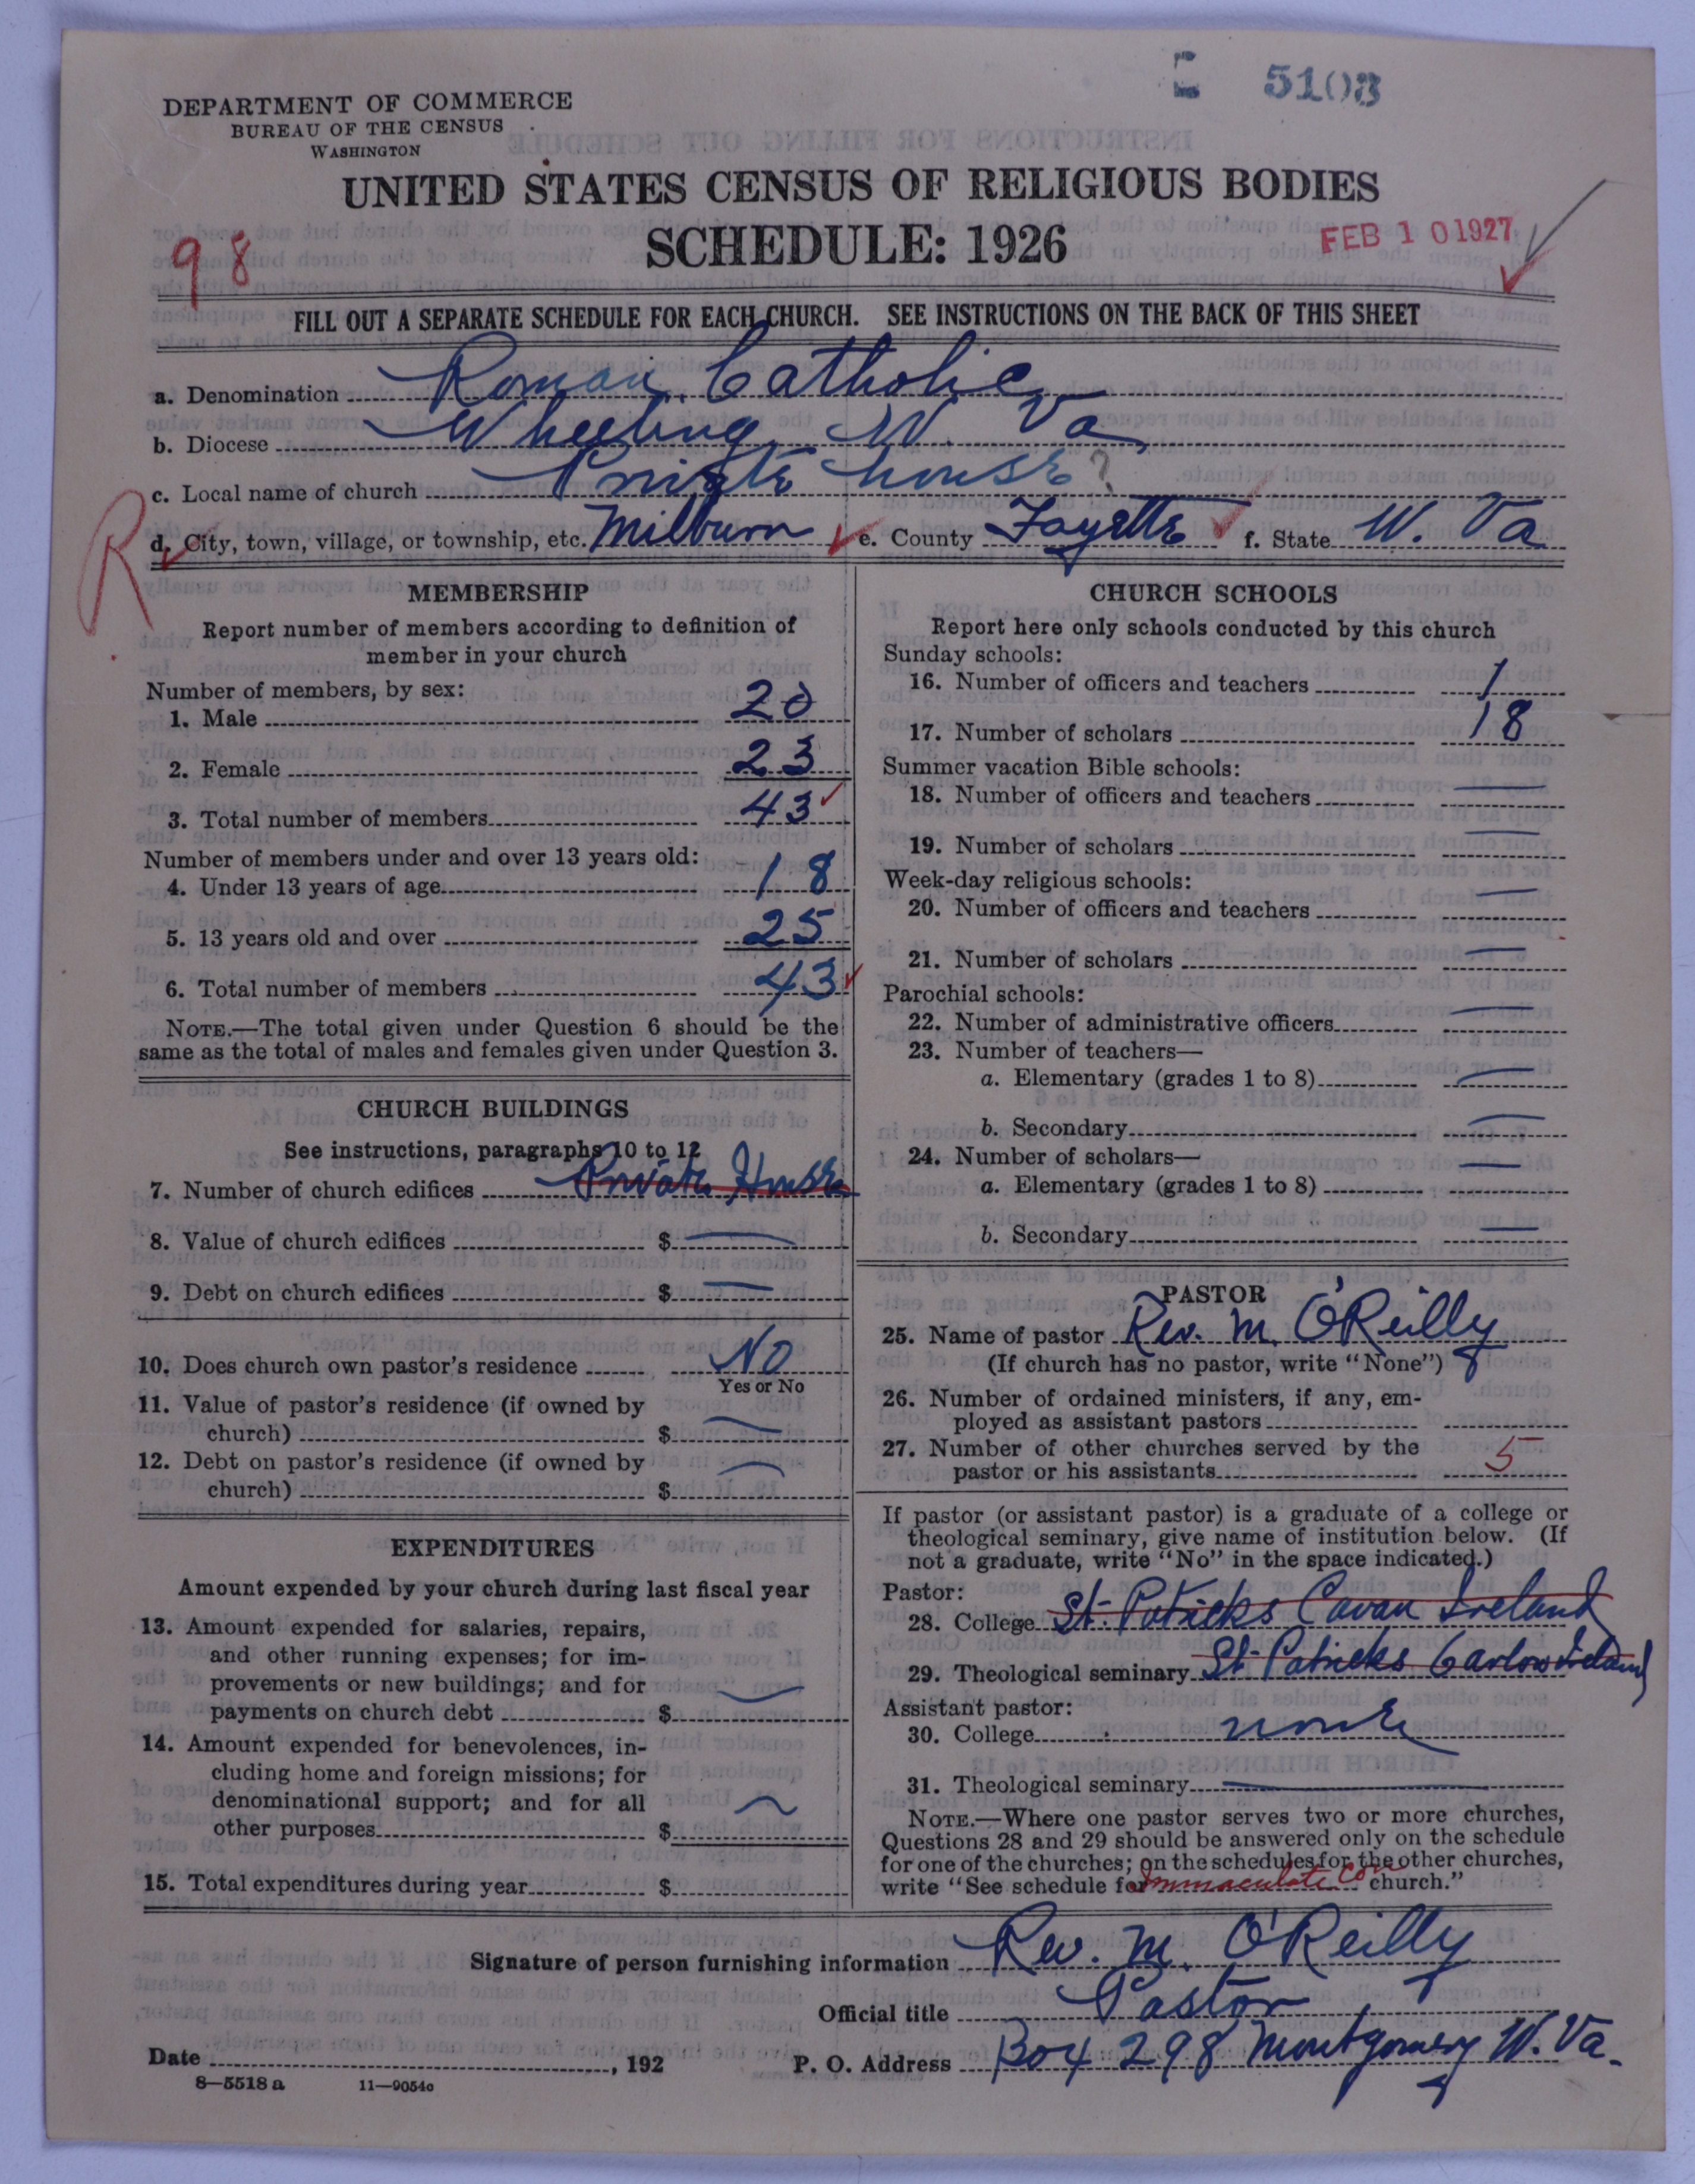 5103
DEPARTMENT OF COMMERCE
BUREAU OF THE CENSUS
WASHINGTON
UNITED STATES CENSUS OF RELIGIOUS BODIES
SCHEDULE: 1926
98
FEB 10 1927
FILL OUT A SEPARATE SCHEDULE FOR EACH CHURCH. SEE INSTRUCTIONS ON THE BACK OF THIS SHEET
a. Denomination Roman Catholic
b. Diocese Wheeling, W. Va
c. Local name of church Private house ?
R
d. City, town, village, or township, etc. Milburn e. County Fayette f. State W. Va
MEMBERSHIP
Report number of members according to definition of
member in your church
Number of members, by sex:
1. Male 20
2. Female 23
3. Total number of members 43
Number of members under and over 13 years old:
4. Under 13 years of age 18
5. 13 years old and over 25
6. Total number of members 43
NOTE.—The total given under Question 6 should be the
same as the total of males and females given under Question 3.
CHURCH BUILDINGS
See instructions, paragraphs 10 to 12
7. Number of church edifices Private House
8. Value of church edifices $ —
9. Debt on church edifices $ —
10. Does church own pastor's residence No
Yes or No
11. Value of pastor's residence (if owned by
church) $ —
12. Debt on pastor's residence (if owned by
church) $ —
EXPENDITURES
Amount expended by your church during last fiscal year
13. Amount expended for salaries, repairs,
and other running expenses; for im-
provements or new buildings; and for
payments on church debt $ —
14. Amount expended for benevolences, in-
cluding home and foreign missions; for
denominational support; and for all
other purposes $ —
15. Total expenditures during year $
CHURCH SCHOOLS
Report here only schools conducted by this church
Sunday schools:
16. Number of officers and teachers 1
17. Number of scholars 18
Summer vacation Bible schools:
18. Number of officers and teachers —
19. Number of scholars —
Week-day religious schools:
20. Number of officers and teachers —
21. Number of scholars —
Parochial schools:
22. Number of administrative officers —
23. Number of teachers—
a. Elementary (grades 1 to 8) —
b. Secondary —
24. Number of scholars—
a. Elementary (grades 1 to 8) —
b. Secondary —
PASTOR
25. Name of pastor Rev. M. O'Reilly
(If church has no pastor, write "None")
26. Number of ordained ministers, if any, em-
ployed as assistant pastors
27. Number of other churches served by the
pastor or his assistants 5
If pastor (or assistant pastor) is a graduate of a college or
theological seminary, give name of institution below. (If
not a graduate, write "No" in the space indicated.)
Pastor:
28. College St. Patricks Cavan Ireland
29. Theological seminary St. Patricks Carlow Ireland
Assistant pastor:
30. College none
31. Theological seminary —
NOTE.—Where one pastor serves two or more churches,
Questions 28 and 29 should be answered only on the schedule
for one of the churches; on the schedules for the other churches,
write "See schedule for Immaculate Con church."
Signature of person furnishing information Rev. M. O'Reilly
Official title Pastor
Date , 192 P. O. Address Box 298 Montgomery W. Va.
8—5518 a 11—9054c